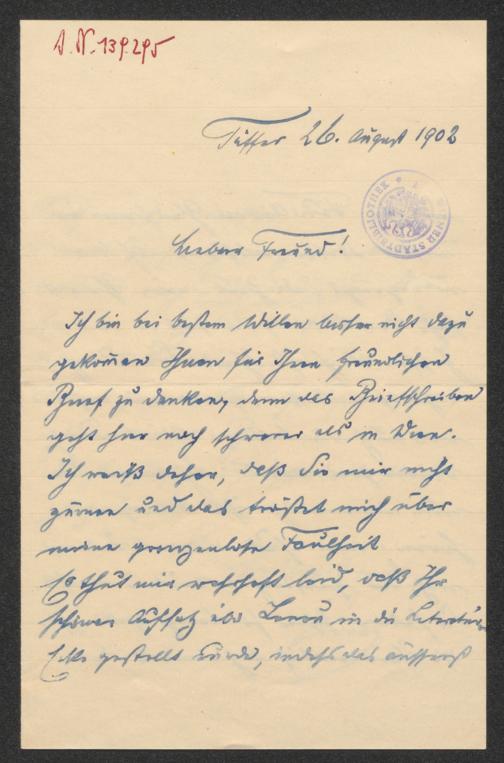 J. N. 139.295
Tüffer 26. August 1902
WIENER STADTBIBLIOTHEK
Lieber Freund!
Ich bin bei bestem Willen bisher nicht dazu
gekommen Ihnen für Ihren freundlichen
Brief zu danken, denn das Briefschreiben
geht hier noch schwerer als in Wien.
Ich weiß daher, daß Sie mir nicht
zürnen und das tröstet mich über
meine grenzenlose Faulheit
Es thut mir wahrhaft leid, daß Ihr
schöner Aufsatz über Lenau in die Literatur-
Ecke gestellt wurde, indeß das äusserst